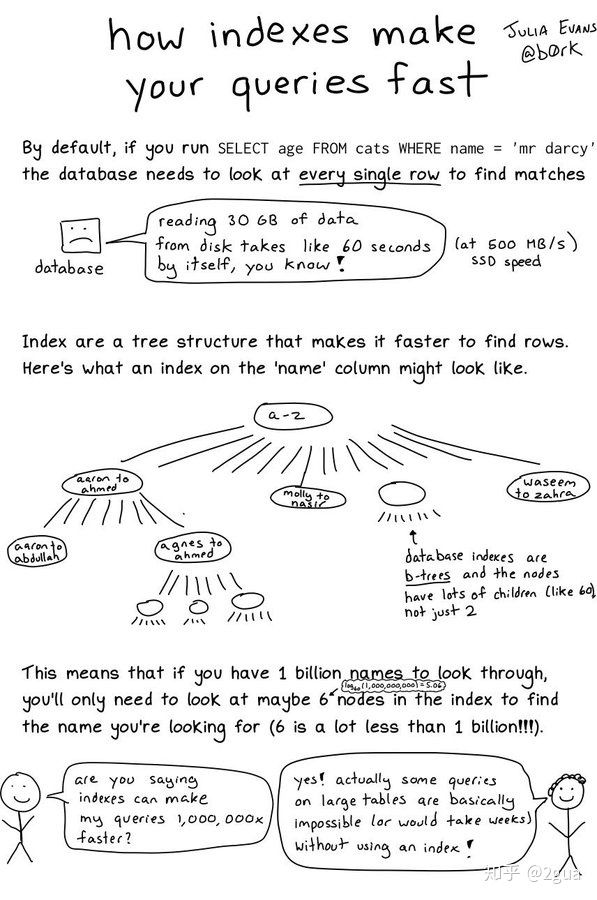 how indexes make
your queries fast
JULIA EVANS
@b0rk
By default, if you run SELECT age FROM cats WHERE name = 'mr darcy'
the database needs to look at every single row to find matches
database
reading 30 GB of data
from disk takes like 60 seconds
by itself, you know!
(at 500 MB/s)
SSD speed
Index are a tree structure that makes it faster to find rows.
Here's what an index on the 'name' column might look like.
a-z
aaron to
ahmed
molly to
nasir
waseem
to zahra
aaron to
abdullah
agnes to
ahmed
database indexes are
b-trees and the nodes
have lots of children (like 60)
not just 2
This means that if you have 1 billion names to look through,
log60(1,000,000,000)=5.06
you'll only need to look at maybe 6 nodes in the index to find
the name you're looking for (6 is a lot less than 1 billion!!!).
are you saying
indexes can make
my queries 1,000,000x
faster?
yes! actually some queries
on large tables are basically
impossible (or would take weeks)
without using an index!
知乎 @2gua